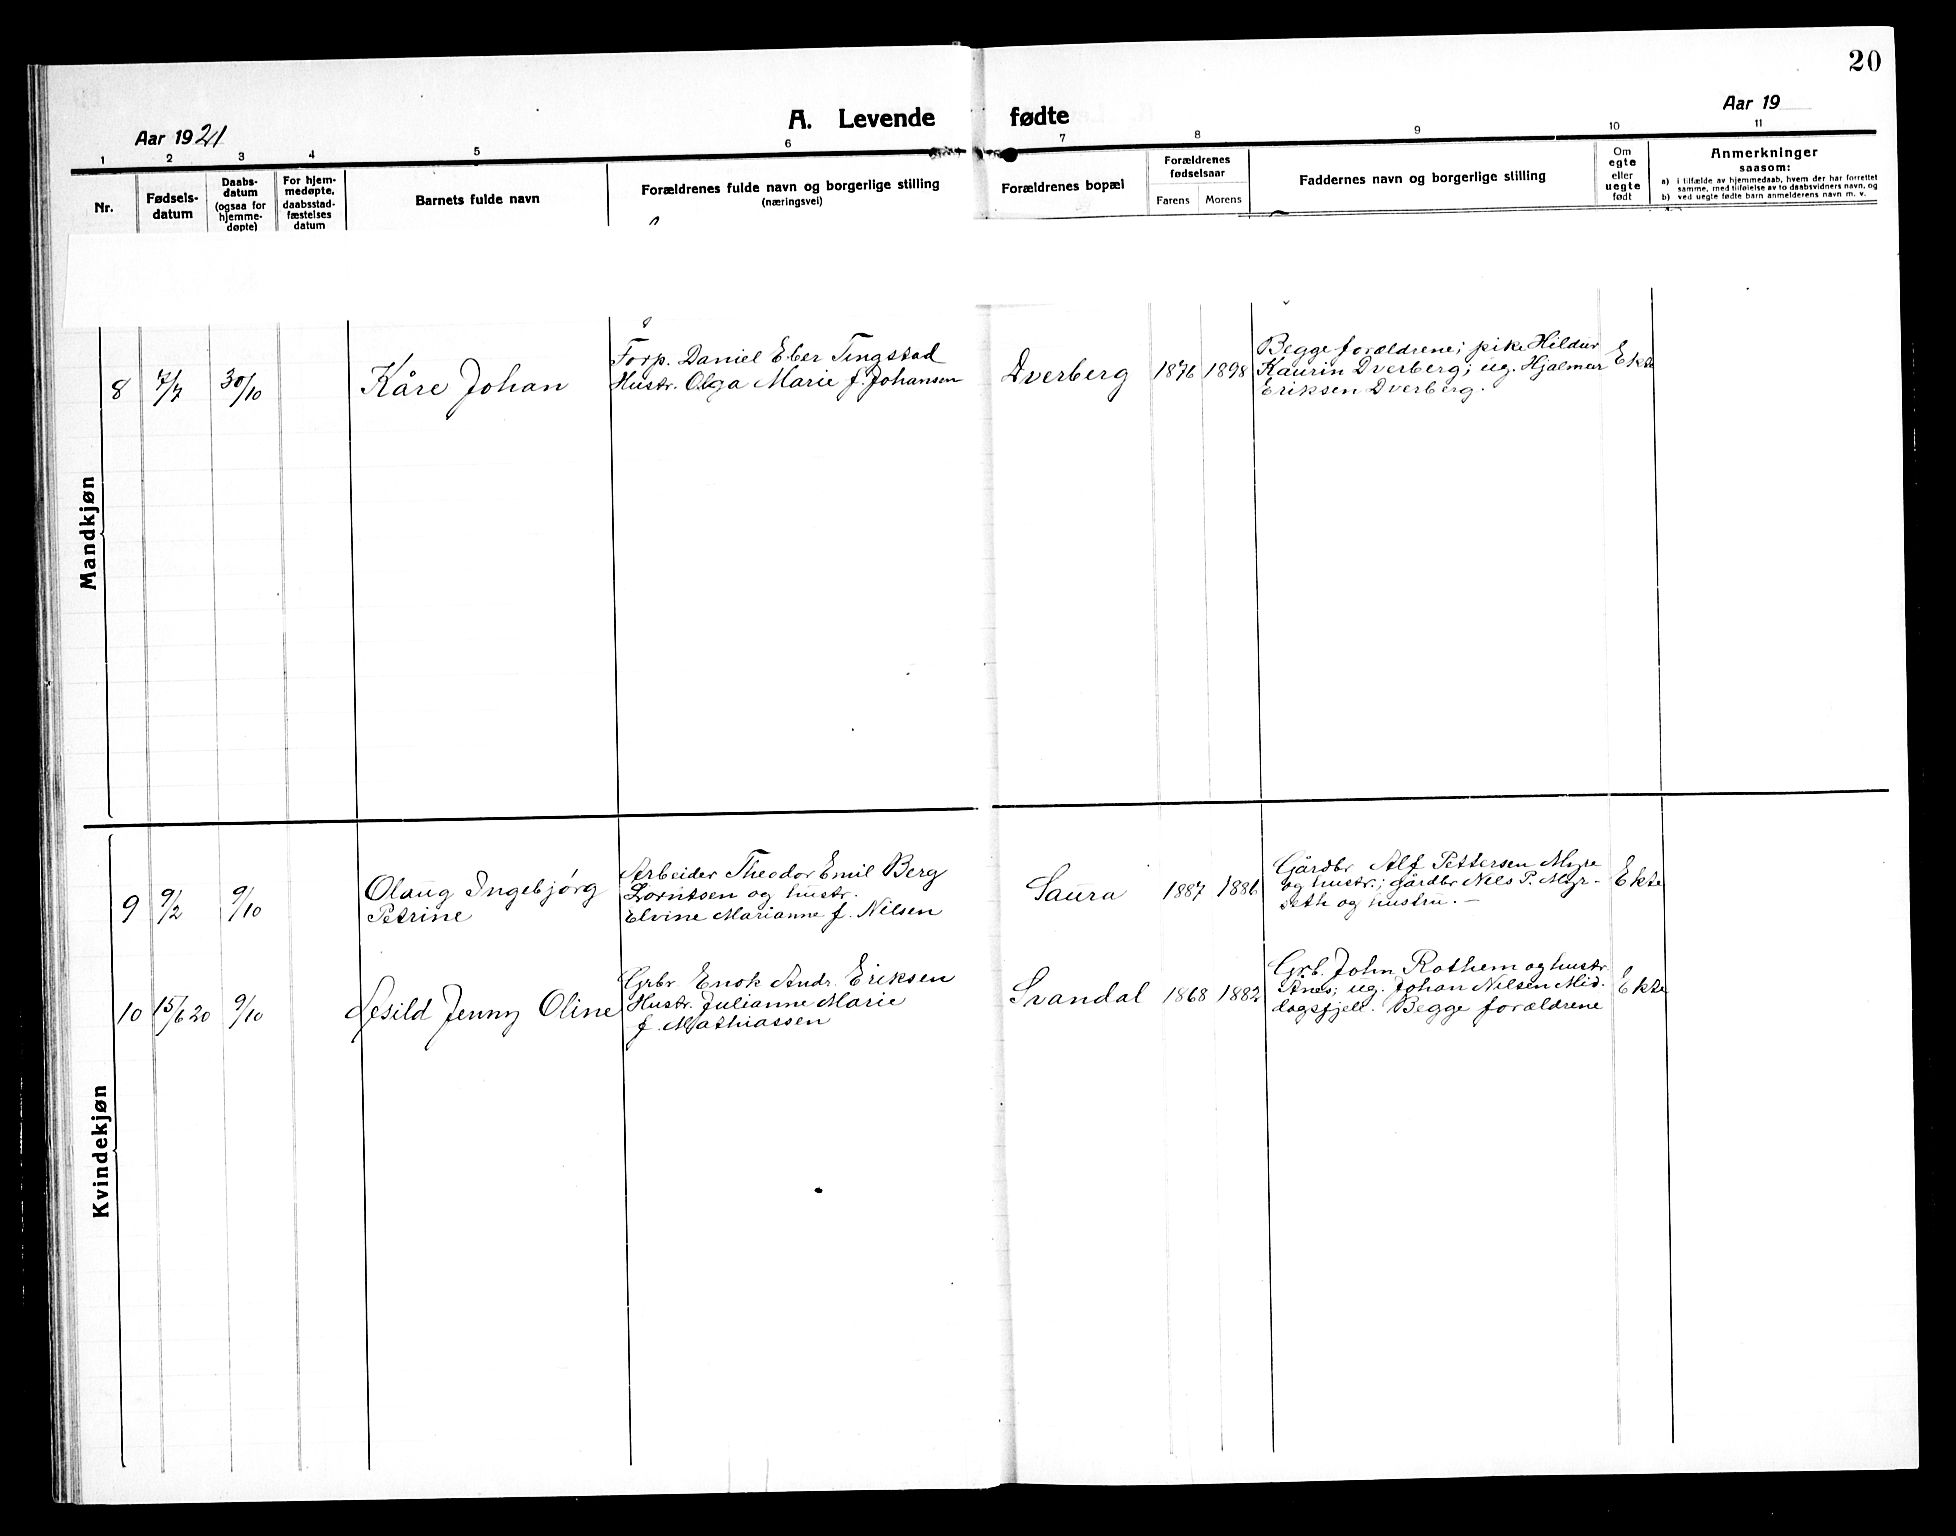 20
Aar 1921
A. Levende fødte
Aar 19
1 2 3 4 5 6 7 8 9 10 11
Nr.
Fødsels-
datum
Daabs-
datum
(ogsaa for
hjemme-
døpte)
For hjem-
medøpte,
daabsstad-
fæstelses
datum
Barnets fulde navn
Forældrenes fulde navn og borgerlige stilling
(næringsvei)
Forældrenes bopæl
Forældrenes
fødselsaar
Farens Morens
Faddernes navn og borgerlige stilling
Om
egte
eller
uegte
født
Anmerkninger
saasom:
a) i tilfælde av hjemmedaab, hvem der har forrettet
samme, med tilføielse av to daabsvidners navn, og
b) ved uegte fødte barn anmelderens navn m. v.
Mandkjøn
8 7/7 30/10
Kåre Johan
Forp. Daniel Eber Tingstad
Hustr. Olga Marie f. Johansen
Dverberg
1876 1898
Begge forældrene; pike Hildur
Kaurin Dverberg; ug. Hjalmar
Eriksen Dverberg.
Ekte
Kvindekjøn
9 9/2 9/10
Olaug Ingebjørg
Petrine
Arbeider Theodor Emil Berg
Lorntsen og hustr.
Elvine Marianne f. Nilsen
Saura
1887 1886
Gårdbr Alf Pettersen Myre
og hustr.; gårdbr Nels P. Myr-
seth og hustru. —
Ekte
10 15/6 20 9/10
Jenny Oline
Grbr Enok Andr. Eriksen
Hustr. Julianne Marie
f. Mathiassen
Svandal
1868 1882
Grb. John Rothem og hustr.
Anes; ug. Johan Nilsen Mid-
dagsfjell. Begge forældrene
Ekte